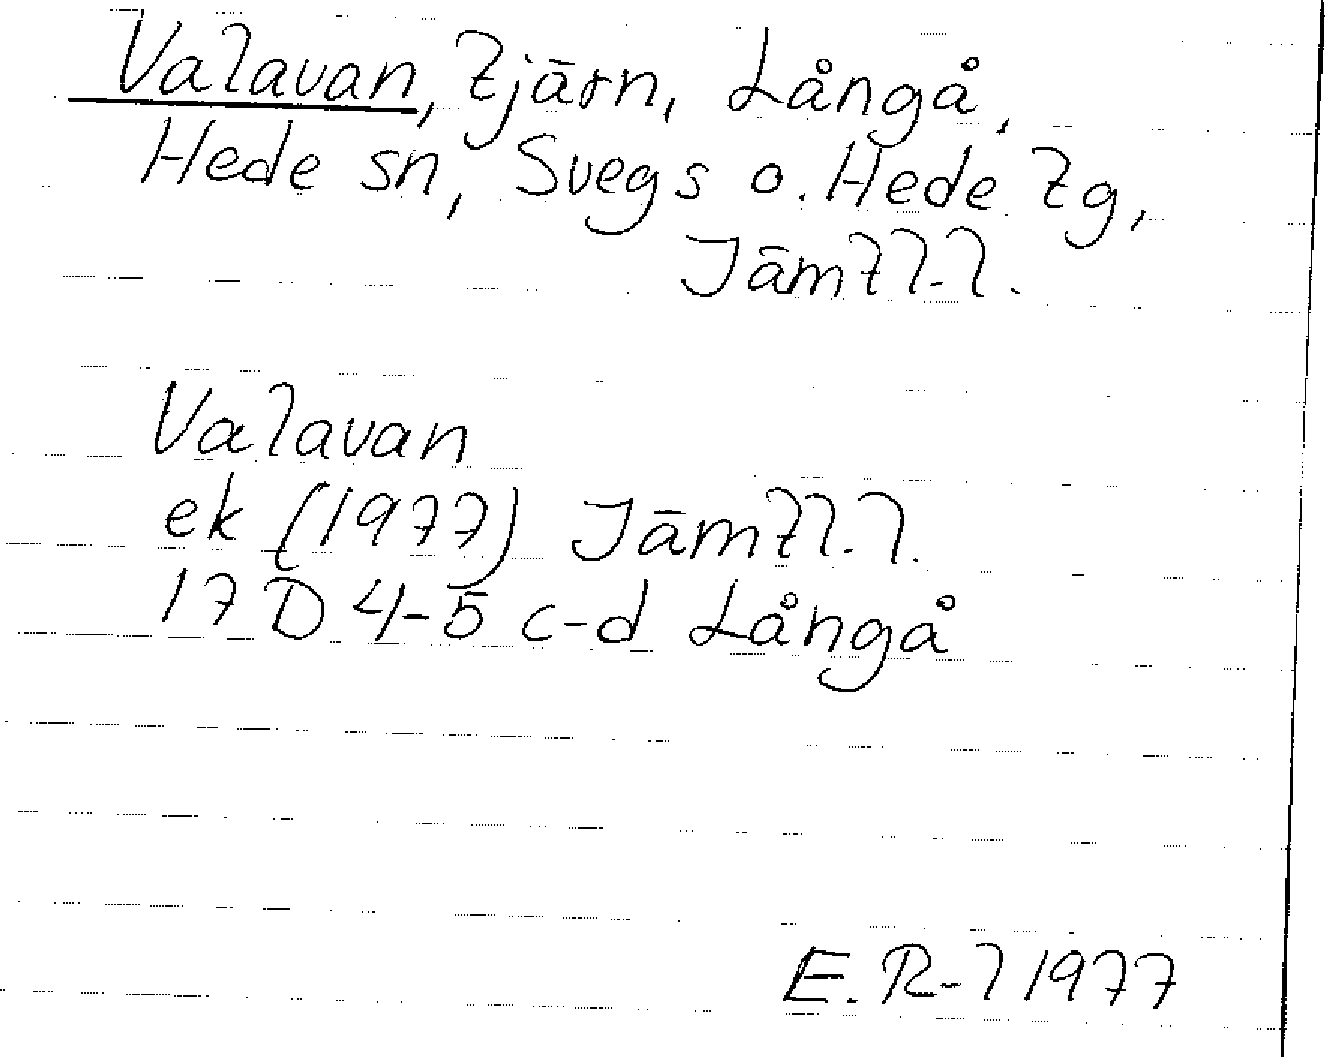 Valavan, tjärn, Långå,
Hede sn, Svegs o. Hede tg,
Jämtl. l.
Valavan
ek (1977) Jämtl. l.
17 D 4-5 c-d Långå
E. R-l 1977